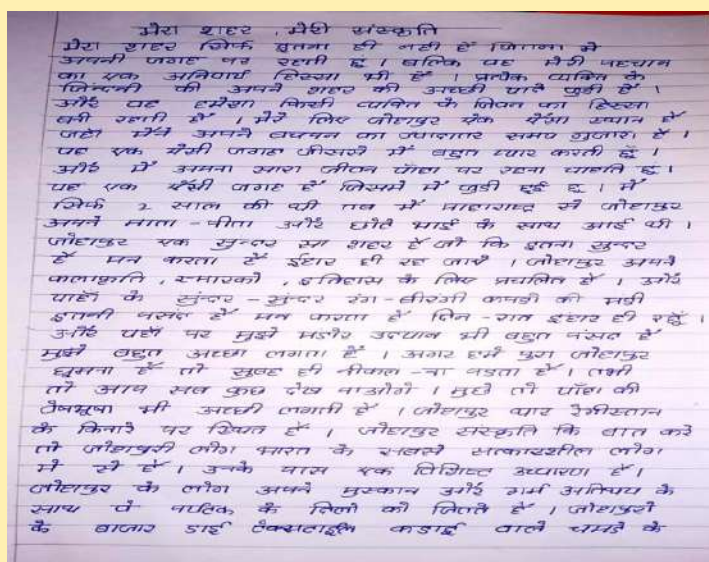 मेरा शहर, मेरी संस्कृति
मेरा शहर सिर्फ इतना ही नही है जितना मे
अपनी जगह पर रहती हूं। बल्कि यह मेरी पहचान
का एक अनिवार्य हिस्सा भी है। प्रत्येक व्यक्ति के
जिंन्दगी की अपने शहर की अच्छी यादे जुडी है।
और यह हमेसा किसी व्यक्ति के जिवन का हिस्सा
बनी रहती है। मेरे लिए जोधपुर एक ऐसा स्थान है
जहाँ मैंने अपने बचपन का ज्यादातर समय गुजारा है।
यह एक ऐसी जगह जीससे में बहुत प्यार करती हूँ।
और में अपना सारा जीवन यँहा पर रहना चाहती हूं।
यह एक ऐसी जगह है जिसमे में जुडी हुई हूं। में
सिर्फ 2 साल की थी तब में माहाराष्ट्र से जोधपुर
अपने माता-पीता और छोटे भाई के साथ आई थी।
जोधपुर एक सुन्दर सा शहर है जो कि इतना सुन्दर
है मन करता है ईधर ही रह जाये। जोधपुर अपने
कलाकृति, स्मारको, इतिहास के लिए प्रचलित है। और
यहाँ के सुंन्दर-सुंन्दर रंग-बीरंगी कपडो की मंडी
इतनी पसंद है मन करता है दिन-रात ईधर ही रहूँ।
और यहाँ पर मुझे मंडोर उदयान भी बहुत पंसद है
मुझे बहुत अच्छा लगता है। अगर हमे पुरा जोधपुर
घुमना है तो सुबह ही नीकल-ना पडता है। तभी
तो आप सब कुछ देख पाओगे। मुझे तो यँहा की
वेषभुषा भी अच्छी लगती है। जोधपुर थार रेगीस्तान
के किनारे पर स्थित है। जोधपुर संस्कृति कि बात करे
तो जोधपुरी लोग भारत के सबसे सत्कारशील लोग
में से है। उनके पास एक विशिष्ट उच्चारण है।
जोधपुर के लोग अपने मुस्कान और गर्म आतिथ्य के
साथ वे पर्यटक के दिलो को जितते है। जोधपुरी
के बाजार डाई टेक्सटाईल कडाई वाले चमडे के